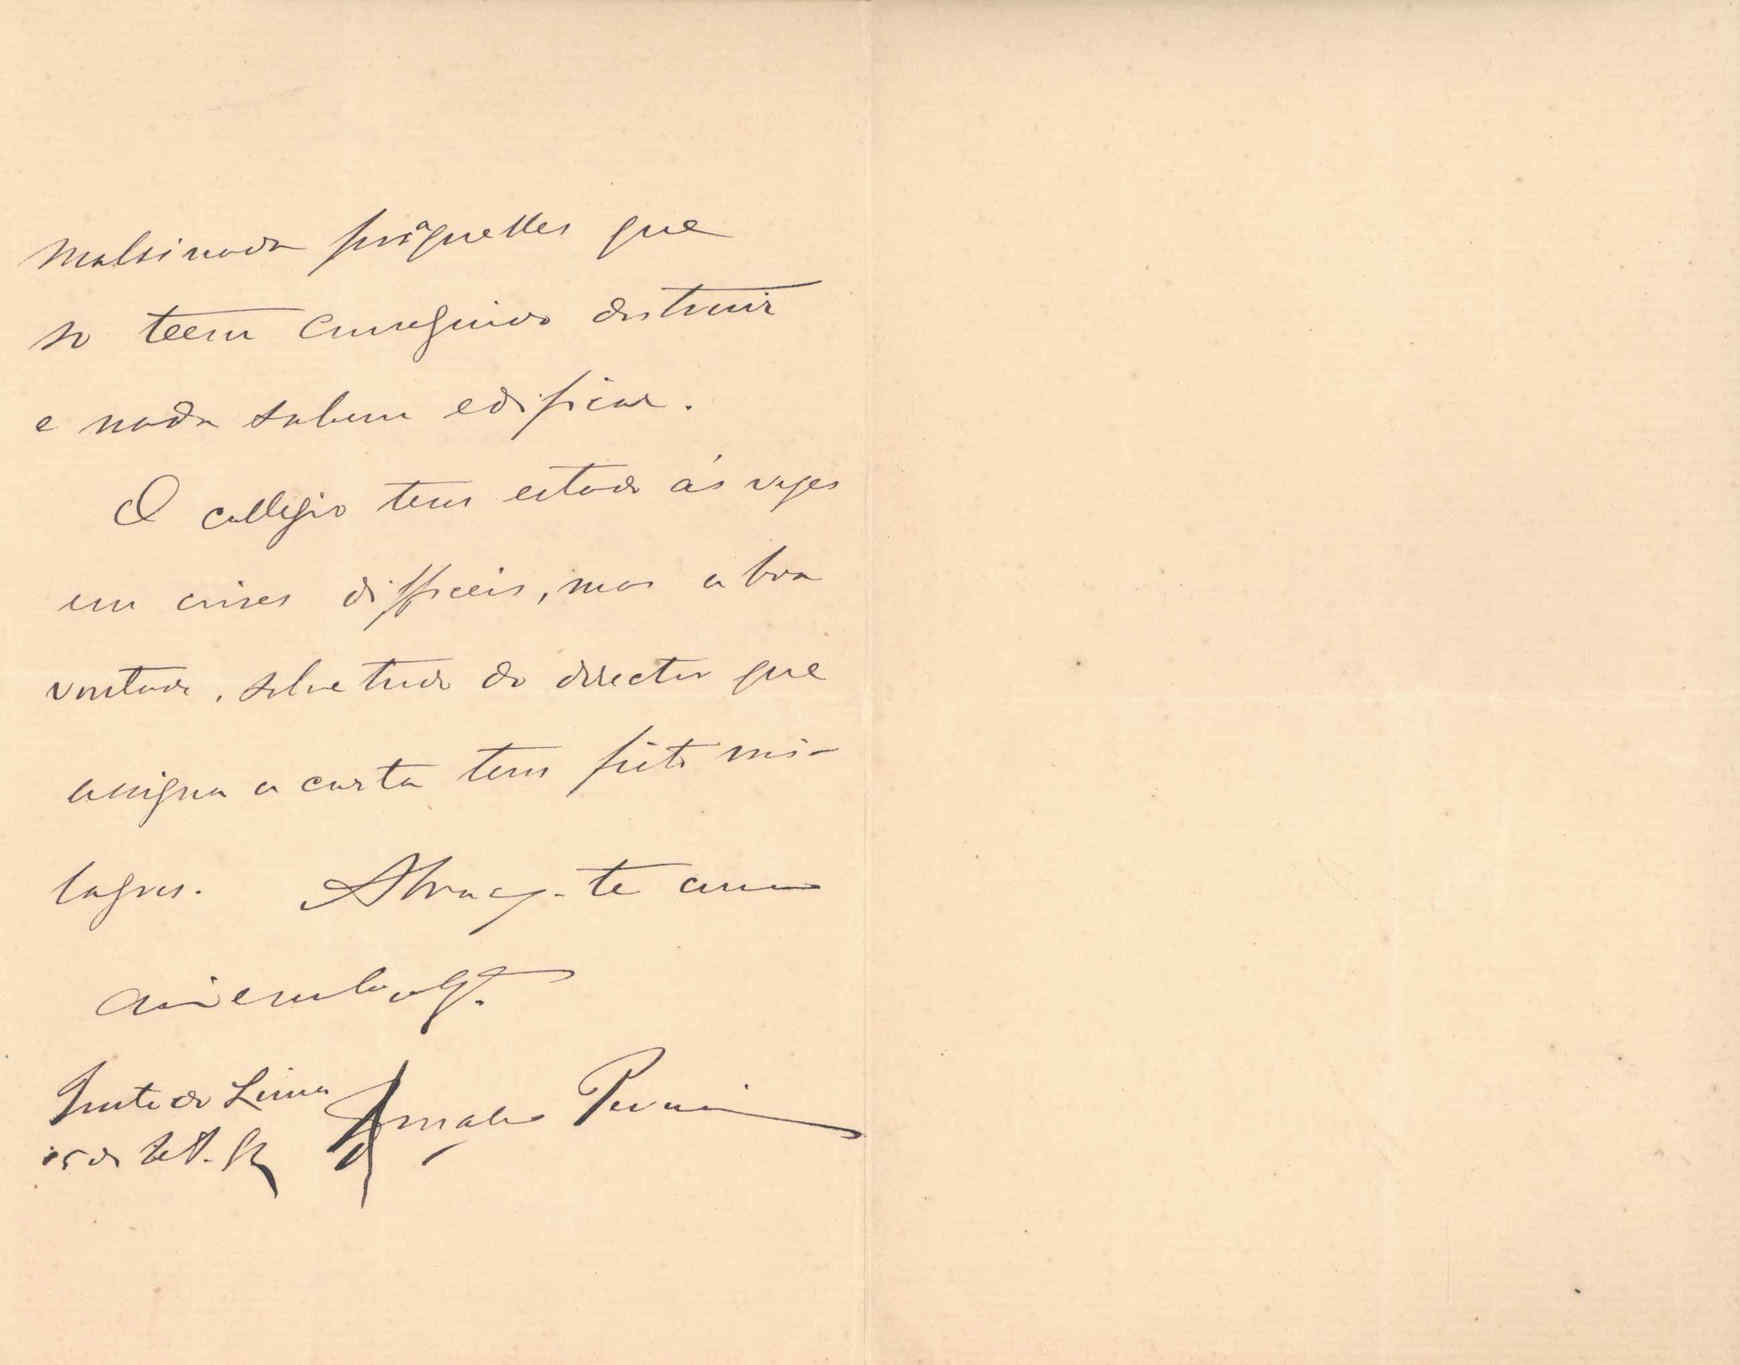 malsinada por aquelles que
so teem conseguido destruir
e nada sabem edificar.
O collegio tem estado ás vezes
em crises difficeis, mas a boa
vontade, sobretudo do director que
assigna a carta tem feito mi-
lagres. Abraça-te com
Ponte do Lima
15 de Set.